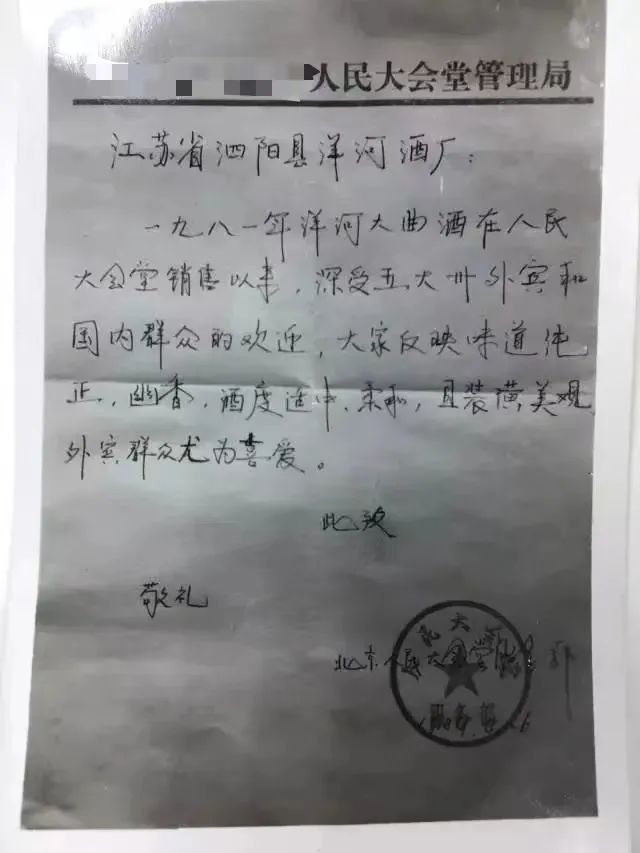 人民大会堂管理局
江苏省泗阳县洋河酒厂：
一九八一年洋河大曲酒在人民
大会堂销售以来，深受五大卅外宾和
国内群众的欢迎，大家反映味道纯
正，幽香，酒度适中、柔和，且装潢美观
外宾群众尤为喜爱。
此致
敬礼
北京人民大会堂
服务部